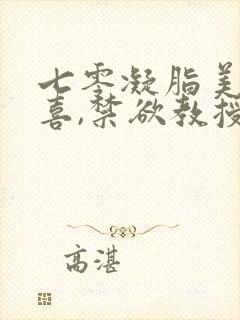 七零凝脂美
喜,禁欲教授
高湛